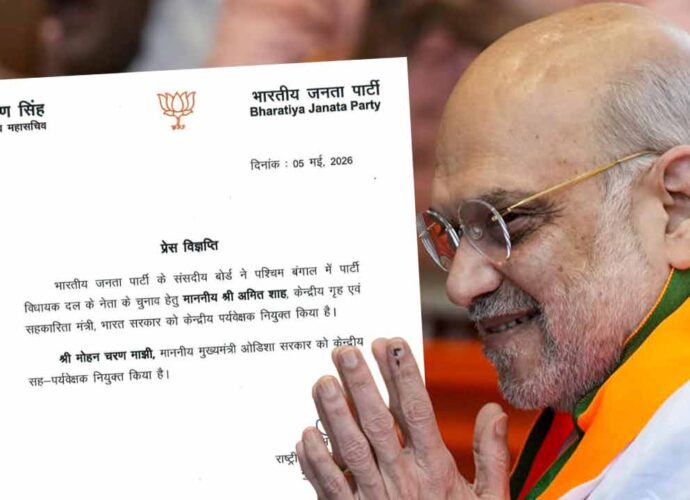 ण सिंह
य महासचिव
भारतीय जनता पार्टी
Bharatiya Janata Party
दिनांक : 05 मई, 2026
प्रेस विज्ञप्ति
भारतीय जनता पार्टी के संसदीय बोर्ड ने पश्चिम बंगाल में पार्टी
विधायक दल के नेता के चुनाव हेतु माननीय श्री अमित शाह, केन्द्रीय गृह एवं
सहकारिता मंत्री, भारत सरकार को केन्द्रीय पर्यवेक्षक नियुक्त किया है।
श्री मोहन चरण माझी, माननीय मुख्यमंत्री ओडिशा सरकार को केन्द्रीय
सह–पर्यवेक्षक नियुक्त किया है।